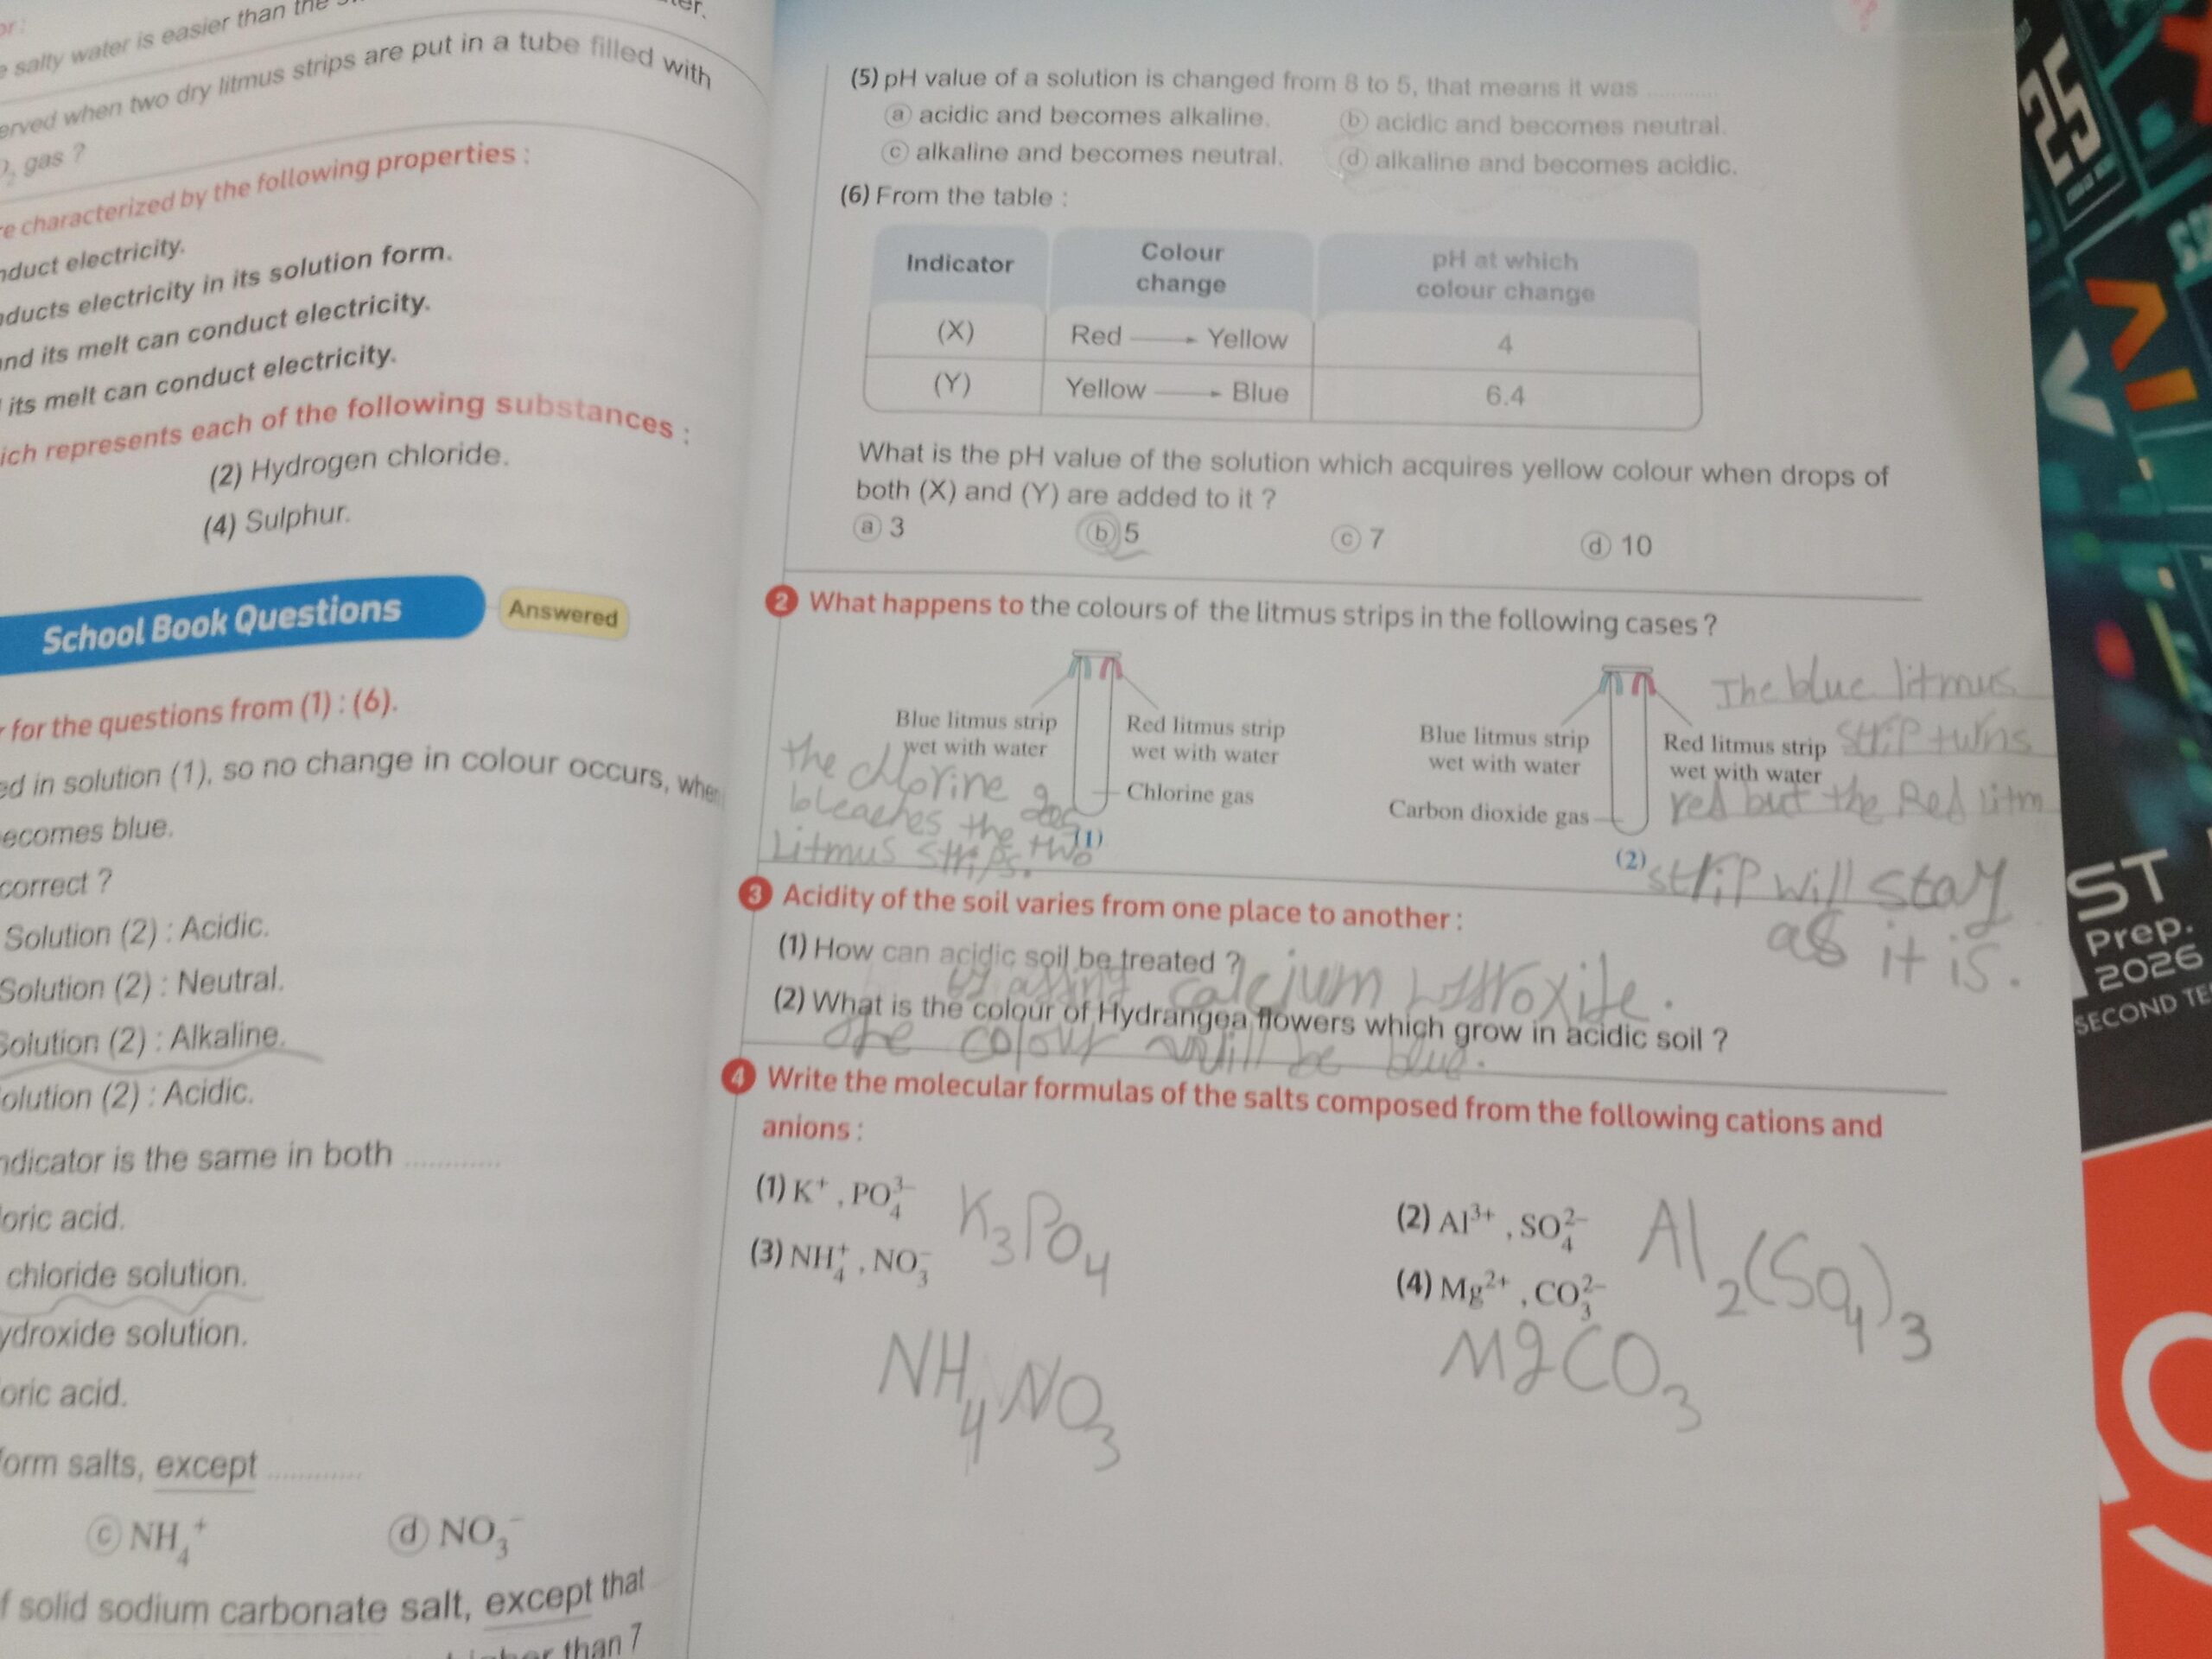 salty water is easier than the
when two dry litmus strips are put in a tube filled with
gas ?
characterized by the following properties :
electricity.
electricity in its solution form.
its melt can conduct electricity.
its melt can conduct electricity.
represents each of the following substances :
(2) Hydrogen chloride.
(4) Sulphur.
School Book Questions
Answered
for the questions from (1) : (6).
in solution (1), so no change in colour occurs,
becomes blue.
correct ?
Solution (2) : Acidic.
Solution (2) : Neutral.
Solution (2) : Alkaline.
Solution (2) : Acidic.
indicator is the same in both ............
acid.
chloride solution.
solution.
acid.
form salts, except ............
ⓒ NH₄⁺ ⓓ NO₃⁻
solid sodium carbonate salt, except that
than 7
(5) pH value of a solution is changed from 8 to 5, that means it was ............
ⓐ acidic and becomes alkaline. ⓑ acidic and becomes neutral.
ⓒ alkaline and becomes neutral. ⓓ alkaline and becomes acidic.
(6) From the table :
Indicator | Colour change | pH at which colour change
(X) | Red → Yellow | 4
(Y) | Yellow → Blue | 6.4
What is the pH value of the solution which acquires yellow colour when drops of
both (X) and (Y) are added to it ?
ⓐ 3 ⓑ 5 ⓒ 7 ⓓ 10
2 What happens to the colours of the litmus strips in the following cases ?
Blue litmus strip
wet with water
Red litmus strip
wet with water
Chlorine gas
(1)
the chlorine gas
bleaches the two
Litmus strips.
Blue litmus strip
wet with water
Red litmus strip
wet with water
Carbon dioxide gas
(2)
The blue litmus
strip turns
red but the Red litm
strip will stay
as it is.
3 Acidity of the soil varies from one place to another :
(1) How can acidic soil be treated ?
by adding calcium hydroxide.
(2) What is the colour of Hydrangea flowers which grow in acidic soil ?
the colour will be blue.
4 Write the molecular formulas of the salts composed from the following cations and
anions :
(1) K⁺ , PO₄³⁻ K₃PO₄
(2) Al³⁺ , SO₄²⁻ Al₂(SO₄)₃
(3) NH₄⁺ , NO₃⁻
NH₄NO₃
(4) Mg²⁺ , CO₃²⁻
MgCO₃
25
ST
Prep.
2026
SECOND